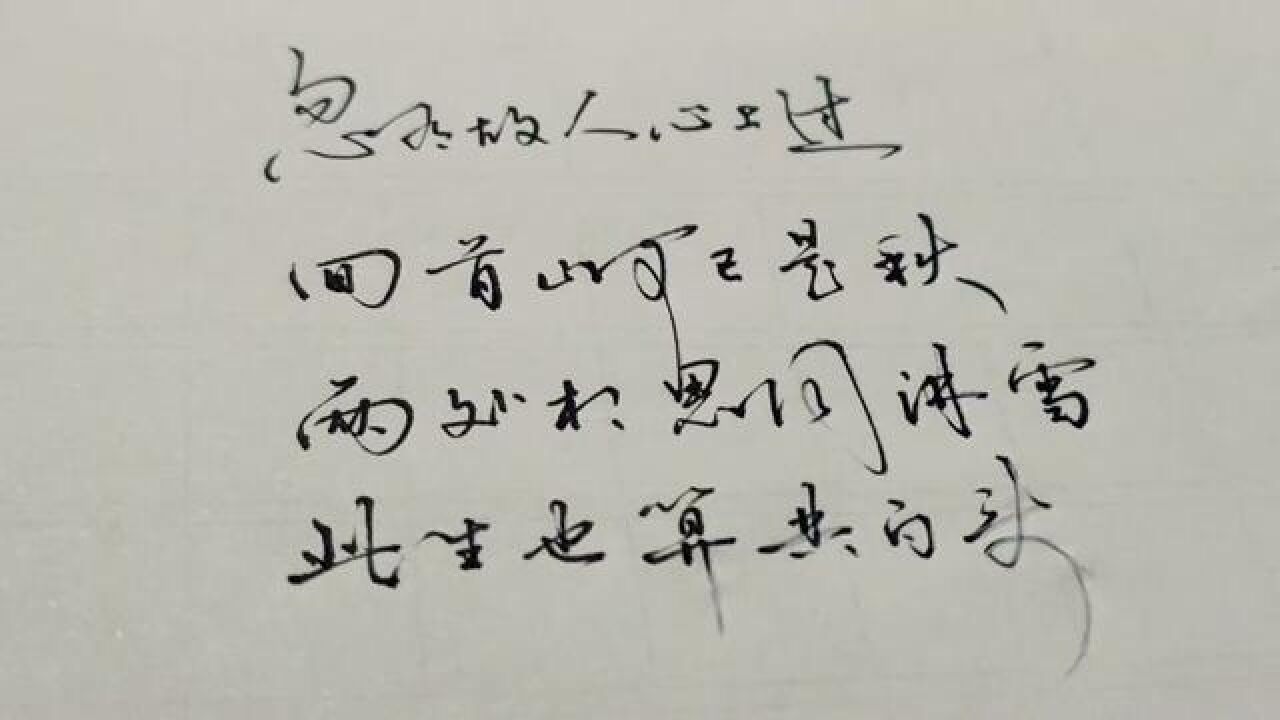 忽有故人心上过
回首山河已是秋
两处相思同淋雪
此生也算共白头